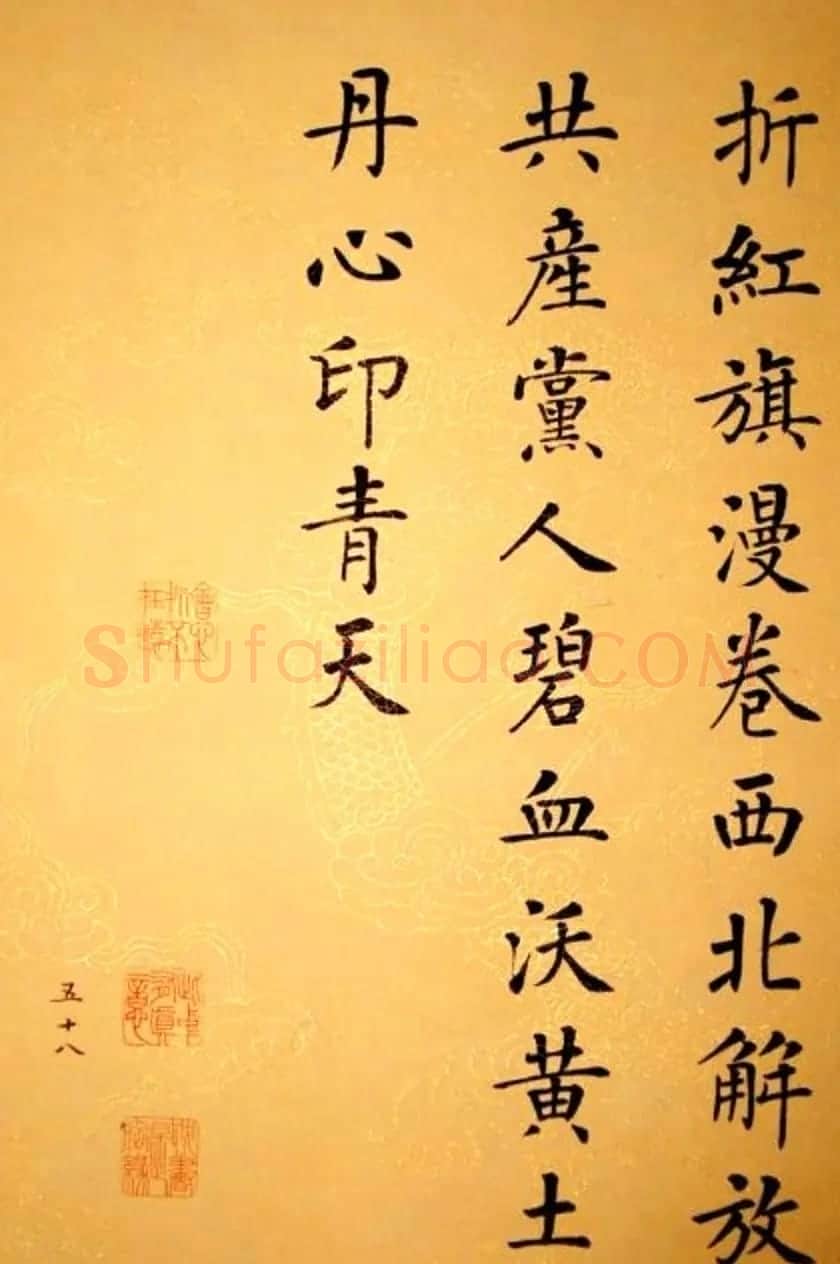 折紅旗漫卷西北解放
共產黨人碧血沃黄土
丹心印青天
五十八